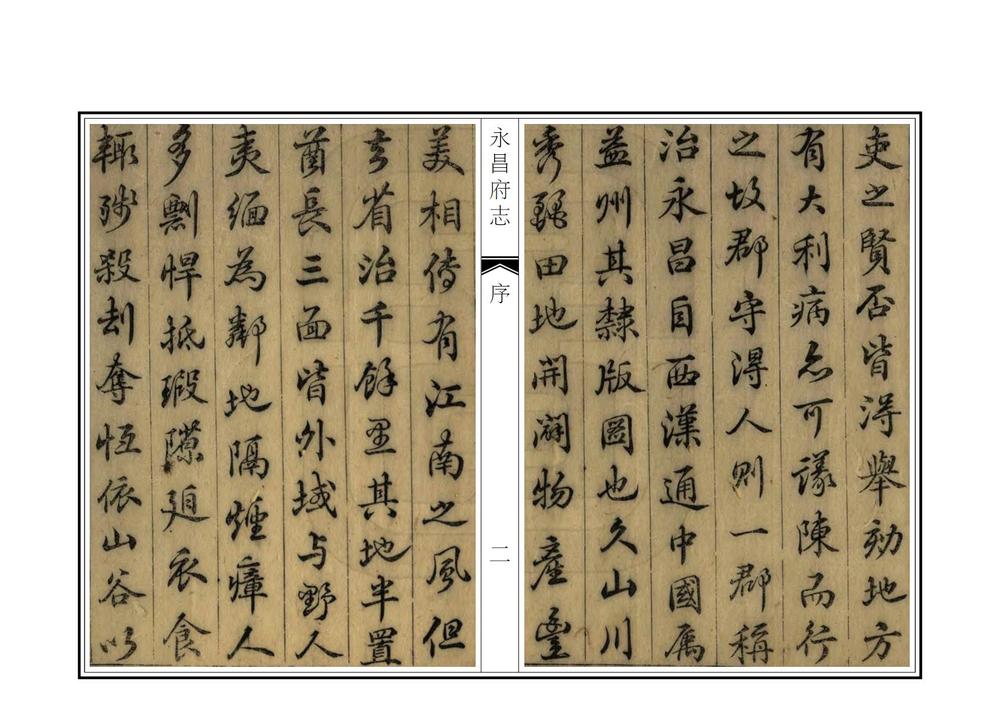 吏之賢否皆得舉劾地方
有大利病亦可議陳而行
之故郡守得人則一郡稱
治永昌自西漢通中國屬
益州其隸版圖也久山川
秀麗田地開濶物產豐
永昌府志
序
二
美相傳有江南之風但
去省治千餘里其地半置
酋長三面皆外域與野人
夷緬為鄰地隔煙瘴人
多剽悍抵瑕隙迫衣食
輙殘殺刦奪恆依山谷以